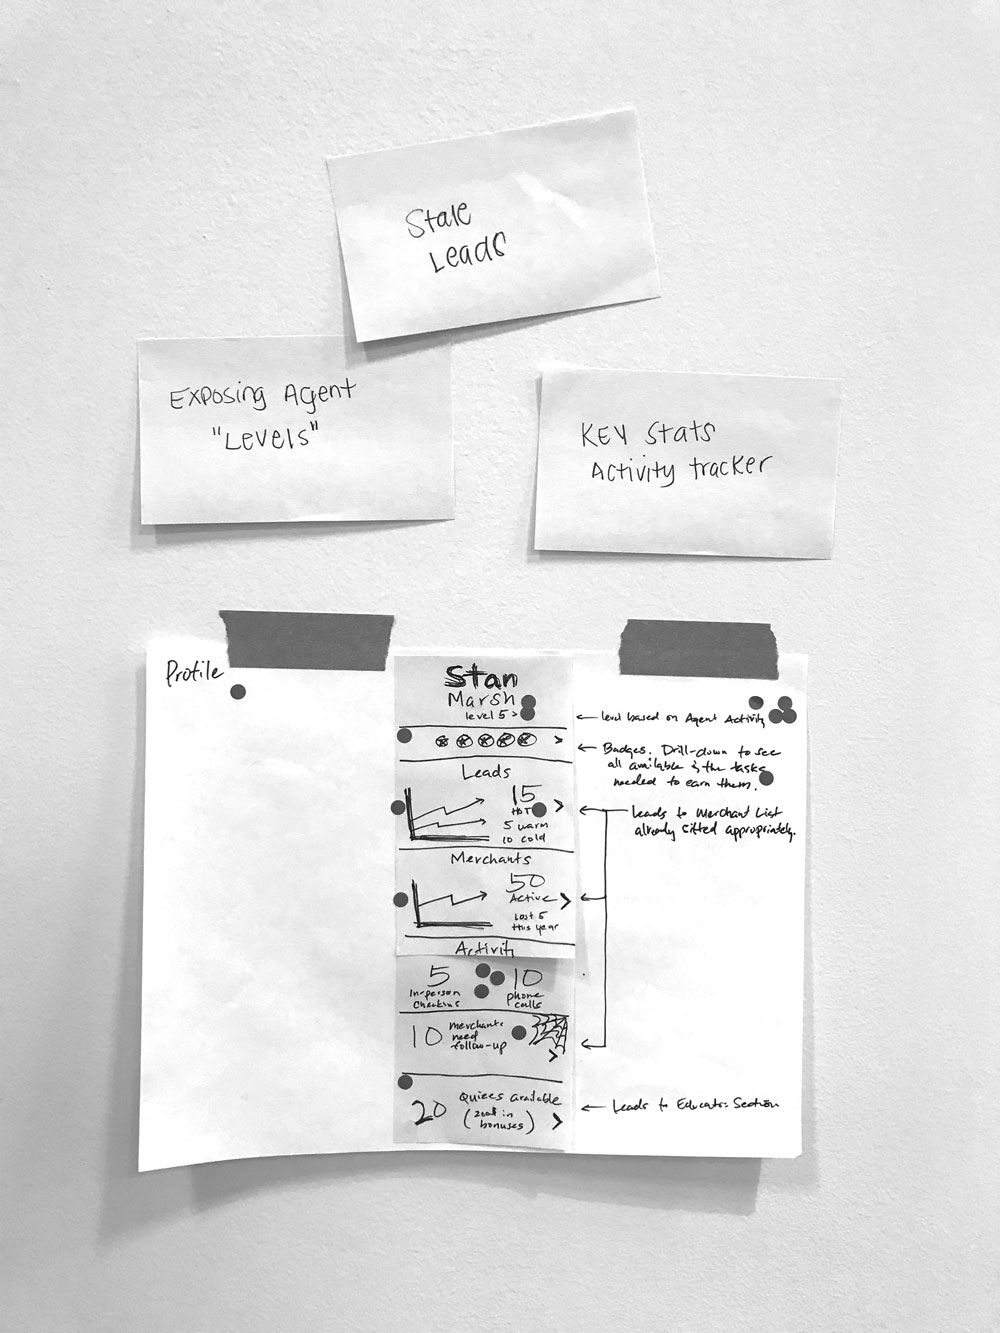 Stale
Leads
Exposing Agent
"Levels"
Key Stats
Activity tracker
Profile
Stan
Marsh
level 5 >
>
Leads
15
HOT
>
5 warm
10 cold
Merchants
50
Active
>
Lost 5
this year
Activity
5
In-person
Checkins
10
phone
calls
10
merchants
need
follow-up
>
20
Quizes available
( in
bonuses)
>
level based on Agent Activity
Badges. Drill-down to see
all available & the tasks
needed to earn them.
Leads to Merchant List
already sifted appropriately.
Leads to Section